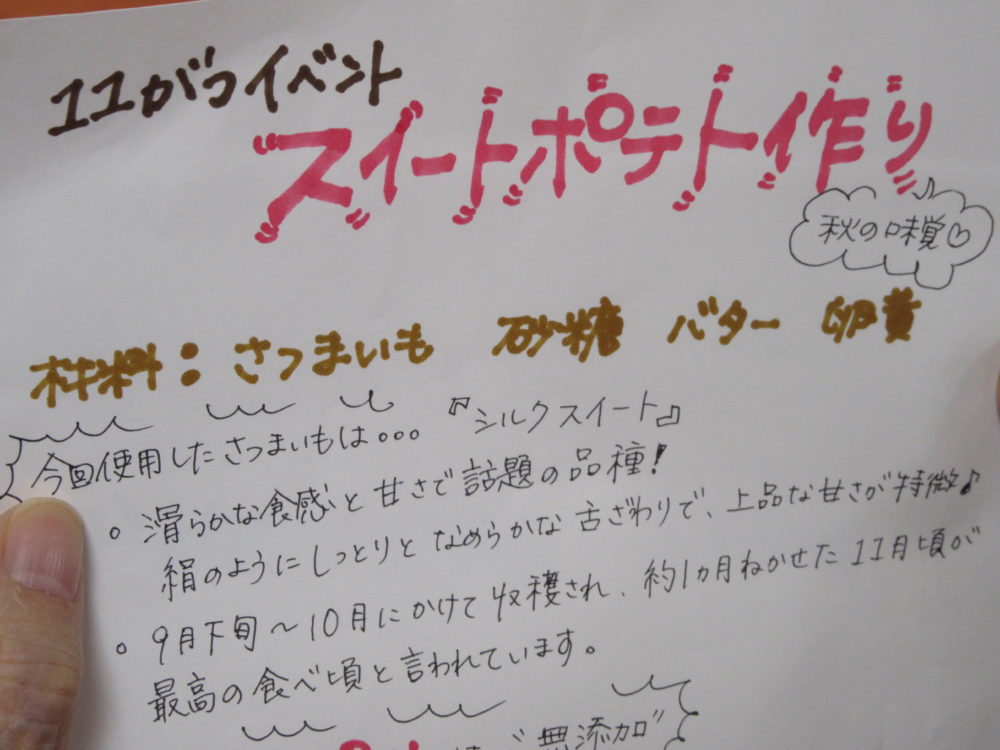 11がつイベント
スイートポテト作り
秋の味覚♡
材料：さつまいも 砂糖 バター 卵黄
今回使用したさつまいもは。。。『シルクスイート』
。滑らかな食感と甘さで話題の品種！
絹のようにしっとりとなめらかな舌ざわりで、上品な甘さが特徴♪
。9月下旬～10月にかけて収穫され、約1カ月ねかせた11月頃が
最高の食べ頃と言われています。
"無添加"